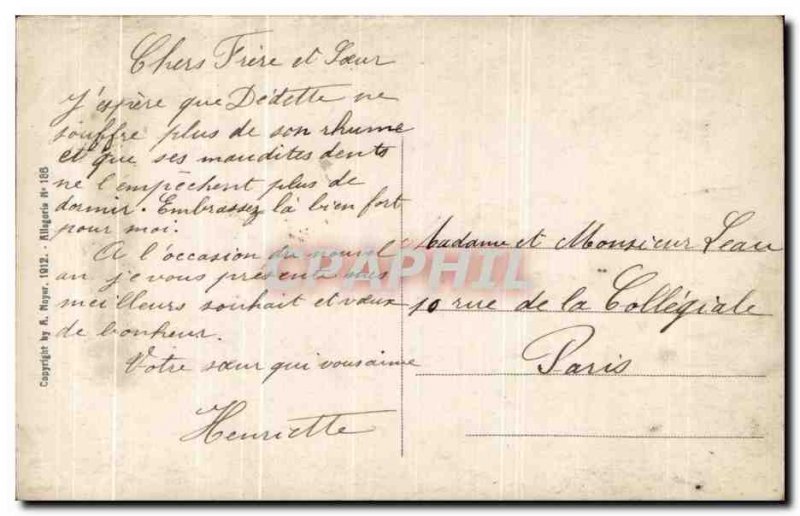 Chers Frère et Sœur
J'espère que Dédette ne
souffre plus de son rhume
et que ses maudites dents
ne l'empêchent plus de
dormir. Embrassez là bien fort
pour moi.
A l'occasion du nouvel
an je vous présente mes
meilleurs souhait et vœux
de bonheur.
Votre sœur qui vous aime
Henriette
Madame et Monsieur Leau
10 rue de la Collégiale
Paris
Copyright by A. Noyer, 1912. - Allégorie N° 188
CPAPHIL